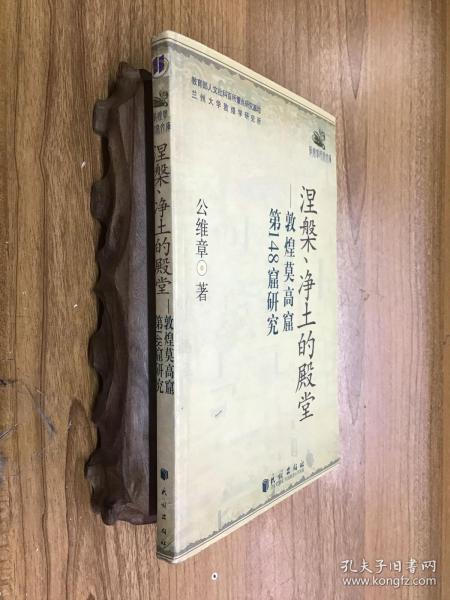 教育部人文社科百所重点研究基地
兰州大学敦煌学研究所
敦煌学研究文库
涅槃、净土的殿堂
——敦煌莫高窟
第148窟研究
公维章 著
民族出版社
涅槃、净土的殿堂——敦煌莫高窟
第148窟研究
民族出版社
孔夫子旧书网
www.kongfz.com